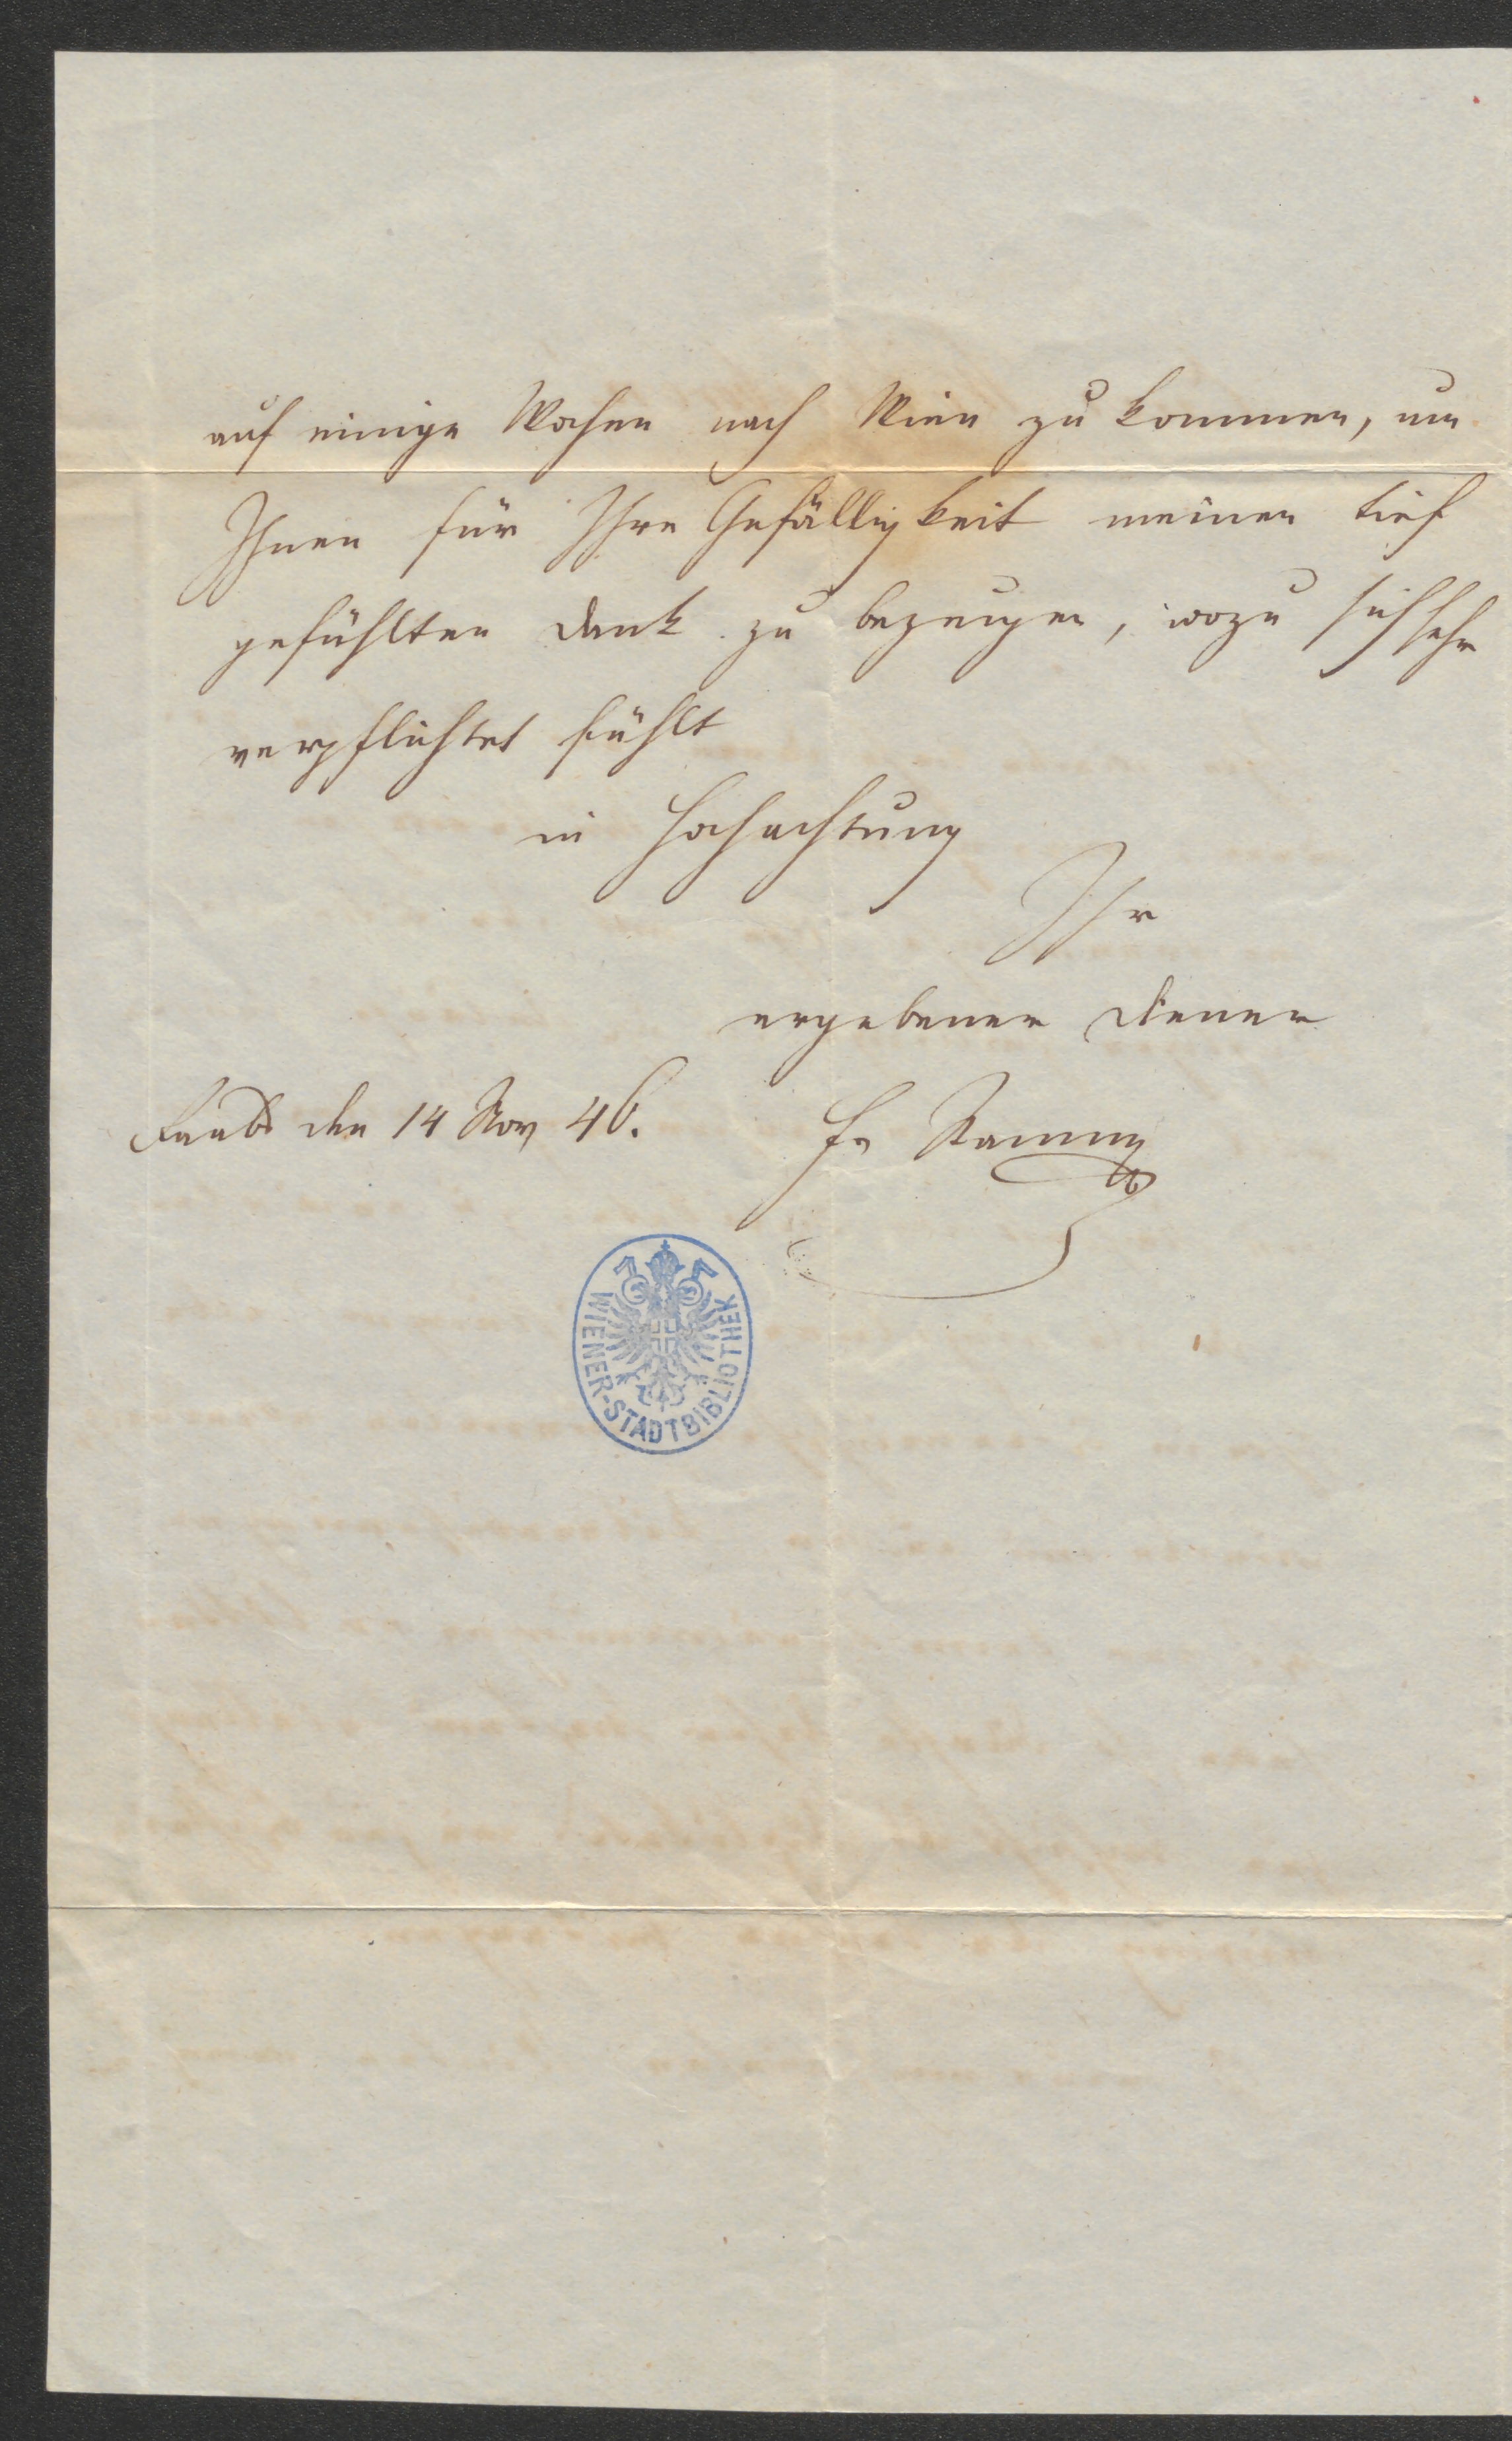 auf einige Wochen nach Wien zu kommen, um
Ihnen für Ihre Gefälligkeit meinen tief
gefühlten Dank zu bezeugen, wozu sich sehr
verpflichtet fühlt
in Hochachtung
Ihr
ergebener Diener
den 14 Nov 46.
Fr
WIENER-STADTBIBLIOTHEK